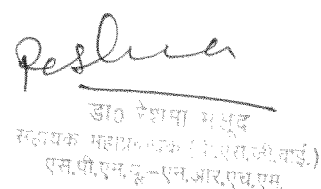 Reshma
डा० रेशमा मसूद
सहायक महाप्रबन्धक
एस.पी.एम.यू.-एन.आर.एच.एम.